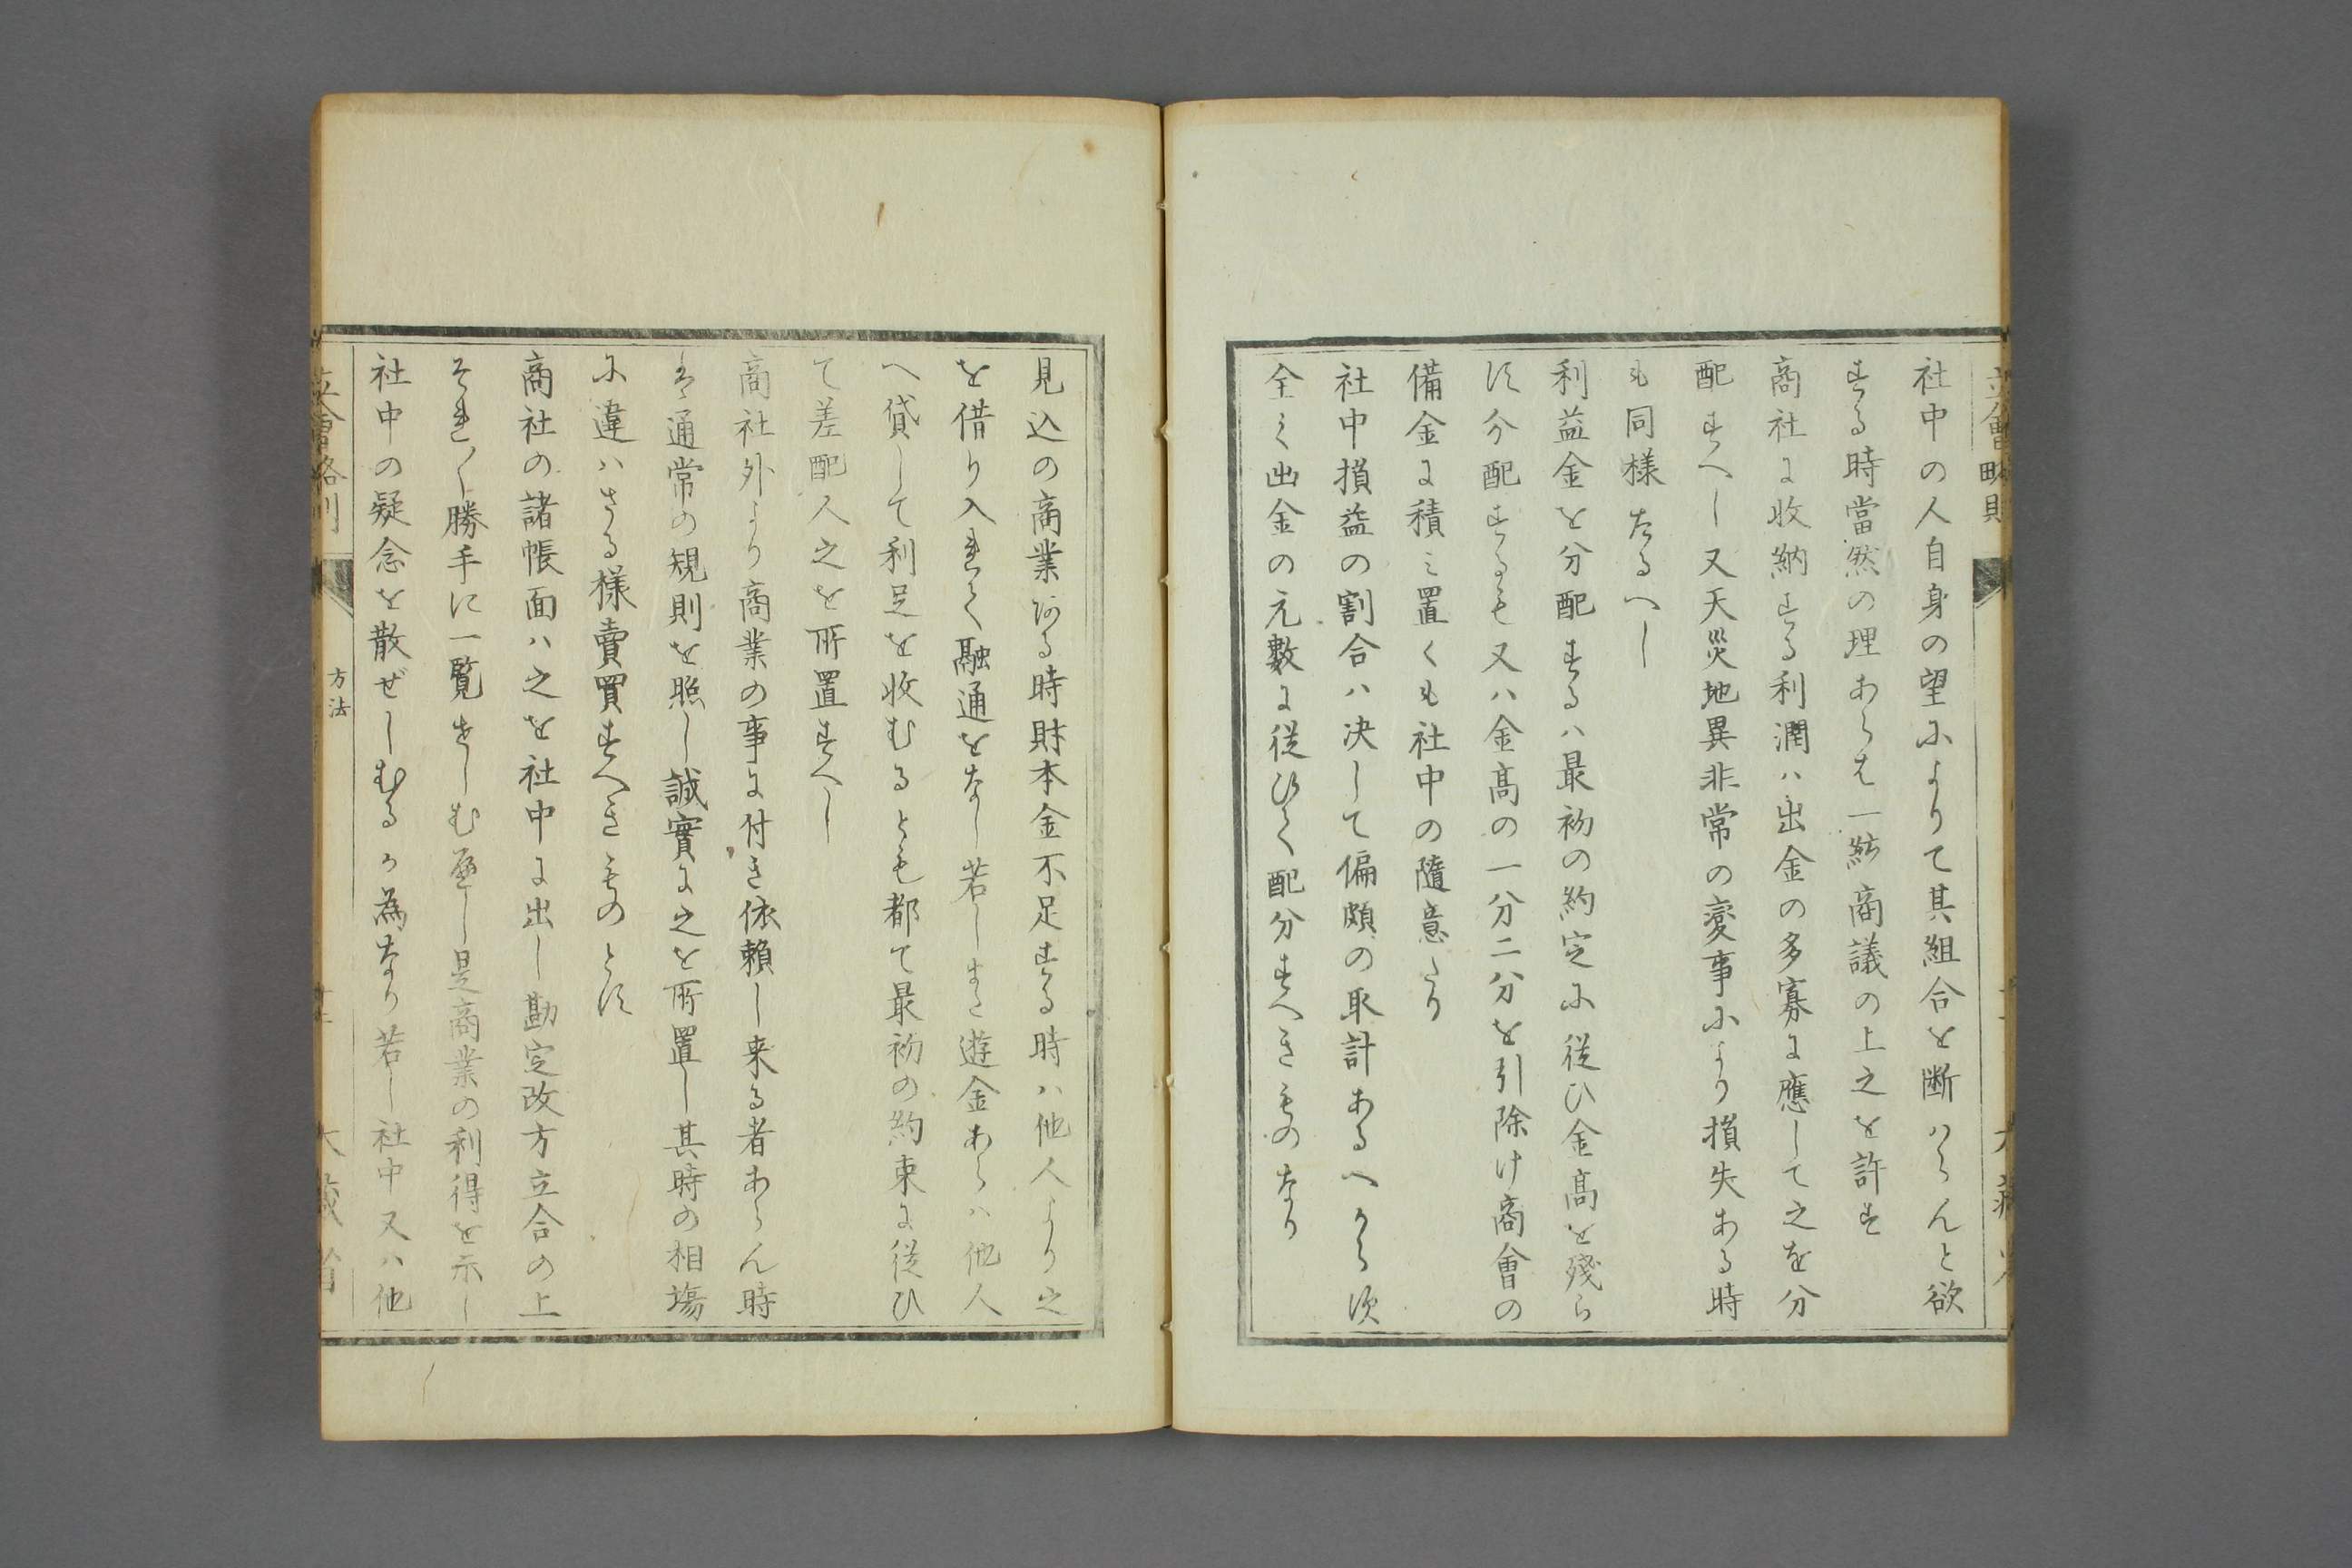 立會略則
社中の人自身の望によりて其組合を断はらんと欲
する時當然の理あらは一統商議の上之を許す
商社に收納する利潤ハ出金の多寡に應して之を分
配すへし又天災地異非常の変事により損失ある時
も同様たるへし
利益金を分配するハ最初の約定に従ひ金髙を残ら
す分配するも又ハ金髙の一分二分を引除け商會の
備金に積ミ置くも社中の隨意たり
社中損益の割合ハ决して偏頗の取計あるへからす
全く出金の元數に従ひて配分すへきものなり
見込の商業ある時財本金不足する時ハ他人より之
を借り入れて融通をなし若しまた遊金あらハ他人
へ貸して利足を收むるとも都て最初の約束に従ひ
て差配人之を所置すへし
商社外より商業の事に付き依賴し来る者あらん時
は通常の規則を照し誠實に之を所置し其時の相塲
に違ハさる様賣買すへきものとす
商社の諸帳面ハ之を社中に出し勘定改方立合の上
それ〱勝手に一覧せしむ是商業の利得を示し
社中の疑念を散ぜしむるか為なり若し社中又ハ他
立會略則
方法
大藏省